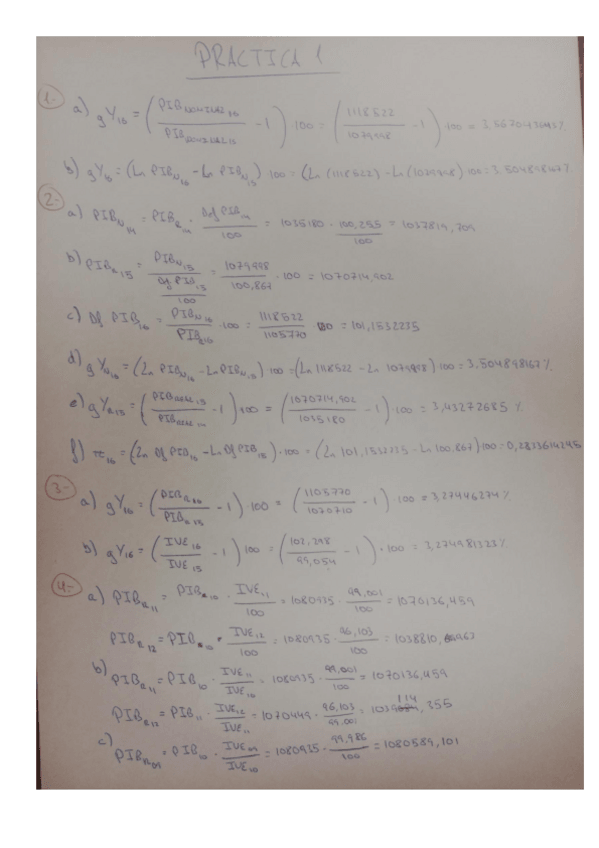 PRACTICA 1
1- a) gY₁₆ = (PIB NOMINAL 16 / PIB NOMINAL 15 - 1) · 100 = (1118522 / 1079998 - 1) · 100 = 3,567043643%
b) gY₁₆ = (Ln PIB N 16 - Ln PIB N 15) 100 = (Ln (1118522) - Ln (1079998)) 100 = 3,504898167%
2- a) PIB N 14 = PIB R 14 · Def PIB 14 / 100 = 1035180 · 100,255 / 100 = 1037819,709
b) PIB R 15 = PIB N 15 / (Def PIB 15 / 100) = 1079998 / 100,867 · 100 = 1070714,902
c) Def PIB 16 = PIB N 16 / PIB R 16 · 100 = 1118522 / 1105770 100 = 101,1532235
d) gY N 16 = (Ln PIB N 16 - Ln PIB N 15) 100 = (Ln 1118522 - Ln 1079998) 100 = 3,504898167%
e) gY R 15 = (PIB REAL 15 / PIB REAL 14 - 1) · 100 = (1070714,902 / 1035180 - 1) · 100 = 3,43272685 %
f) π₁₆ = (Ln Def PIB 16 - Ln Def PIB 15) · 100 = (Ln 101,1532235 - Ln 100,867) 100 = 0,2833614245
3- a) gY₁₆ = (PIB R 16 / PIB R 15 - 1) · 100 = (1105770 / 1070710 - 1) · 100 = 3,27446274%
b) gY₁₆ = (IVE 16 / IVE 15 - 1) 100 = (102,298 / 99,054 - 1) · 100 = 3,274981323%
4- a) PIB R 11 = PIB R 10 · IVE 11 / 100 = 1080935 · 99,001 / 100 = 1070136,459
PIB R 12 = PIB R 10 · IVE 12 / 100 = 1080935 · 96,103 / 100 = 1038810,967
b) PIB R 11 = PIB 10 · IVE 11 / IVE 10 = 1080935 · 99,001 / 100 = 1070136,459
PIB R 12 = PIB 11 · IVE 12 / IVE 11 = 1070449 · 96,103 / 99,001 = 1039114,355
c) PIB R 09 = PIB 10 · IVE 09 / IVE 10 = 1080935 · 99,986 / 100 = 1080589,101